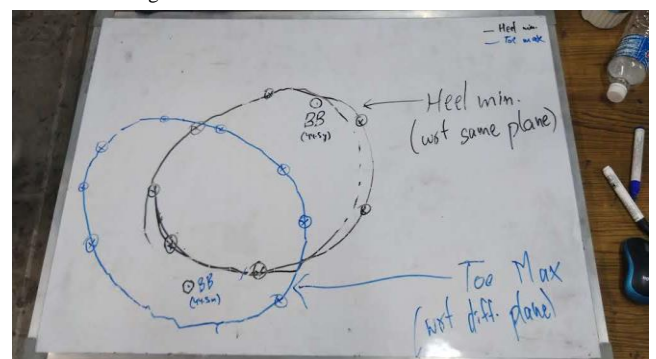 — Heel min.
— Toe max
BB
Heel min.
(wrt same plane)
BB
Toe Max
(wrt diff. plane)